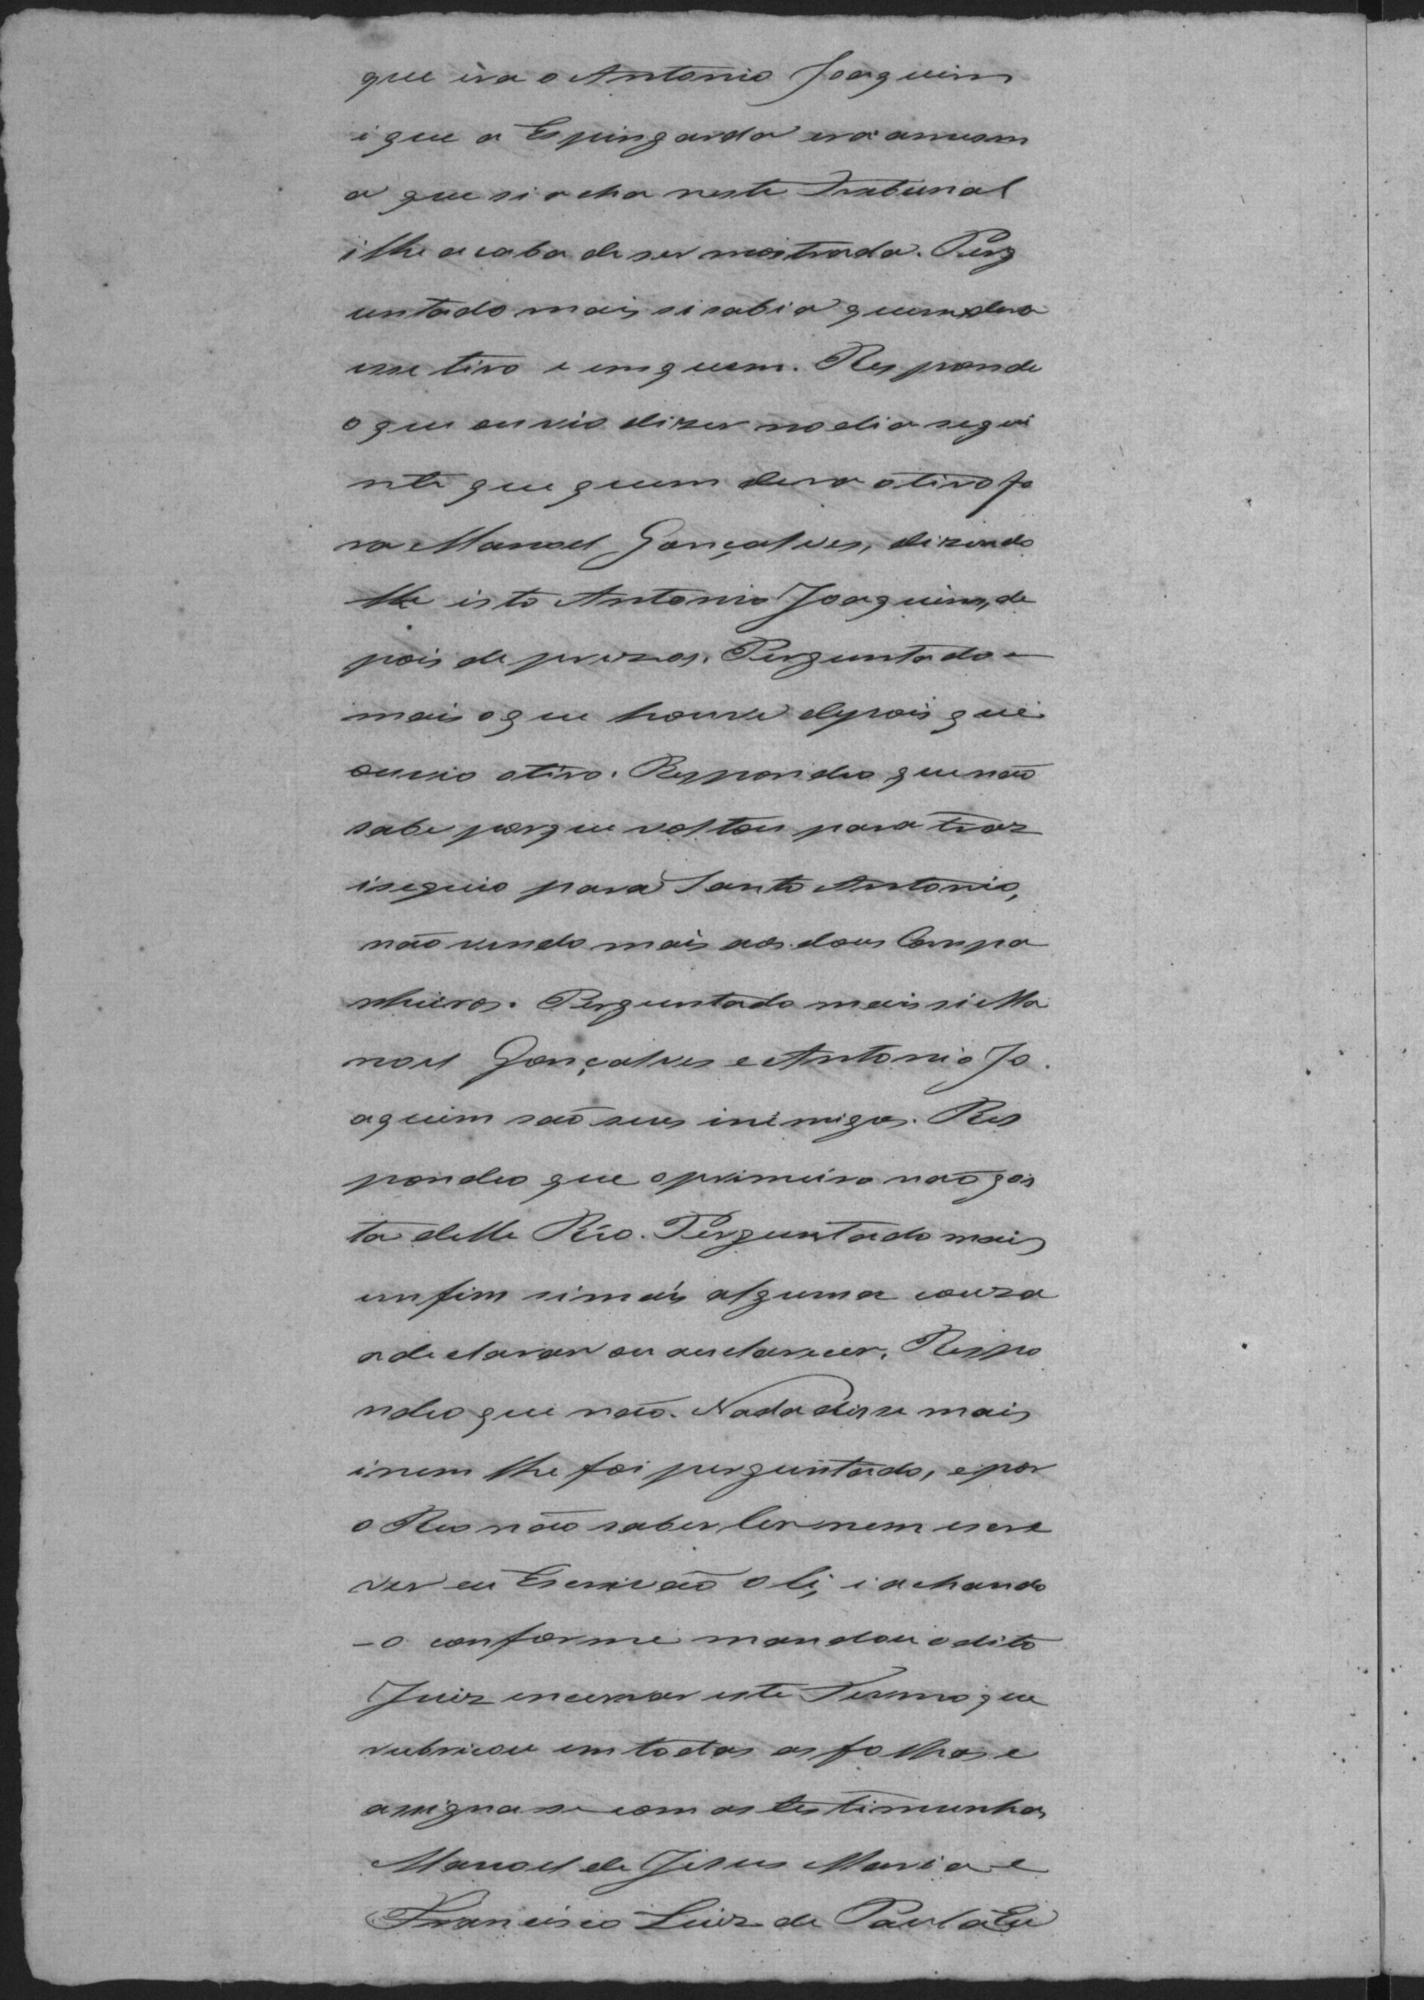 que éra o Antonio Joaquim
i que a Espingarda era a mesm
a que si acha neste Tribunal
i lhe acaba de ser mostrada. Perg
untado mais si sabia quem dera
esse tiro e em quem. Responde
o que ouvio dizer no dia segui
nte que quem dera o tiro fo
ra Manoel Gonçalves, dizendo
lhe isto Antonio Joaquim, de
pois de prezos. Perguntado
mais o que houve depois que
ouvio o tiro. Respondeo que não
sabe porque voltou para traz
i seguio para Santo Antonio,
não vendo mais aos dous Compa
nheiros. Perguntado mais si Ma
noel Gonçalves e Antonio Jo
aquim são seus inimigos. Res
pondeo que o primeiro não gos
ta delle Réo. Perguntado mais
emfim si mais alguma couza
a declarar ou esclarecer. Respo
ndeo que não. Nada disse mais
i nem lhe foi perguntado, e por
o Reo não saber ler nem escre
ver eu Escrivão o li, i achando
-o conforme mandou o dito
Juiz encerrar este Termo que
rubricou em todas as folhas e
assigna-se com as testimunhas
Manoel de Jesus Maria e
Francisco Luiz de Paula Eu